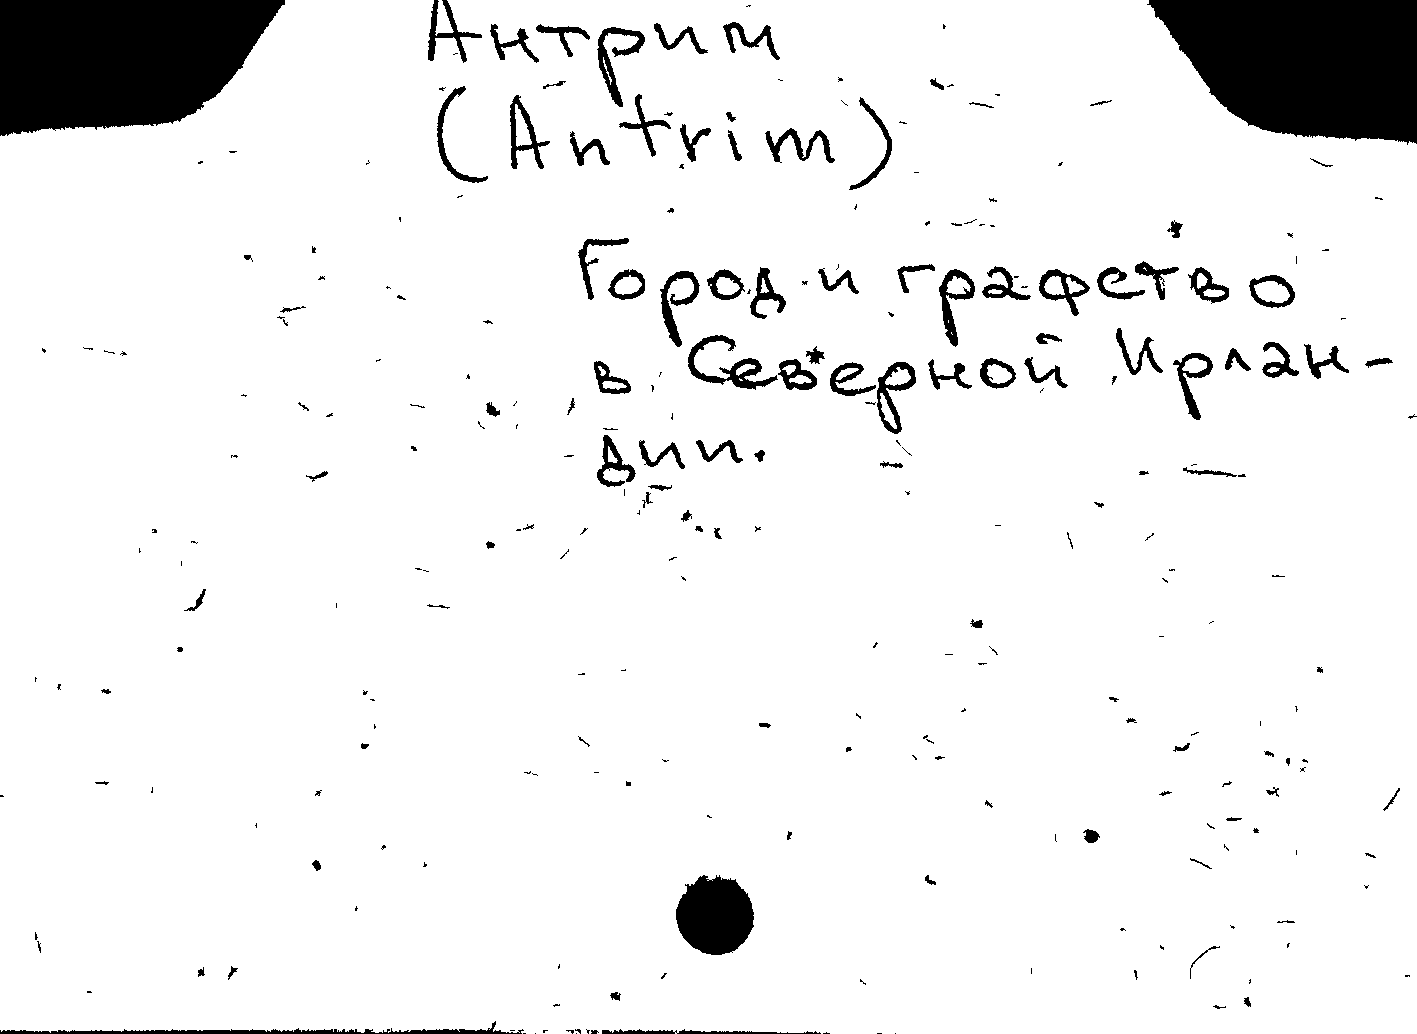 Антрим
(Antrim)
Город и графство
в Северной Ирлан-
дии.